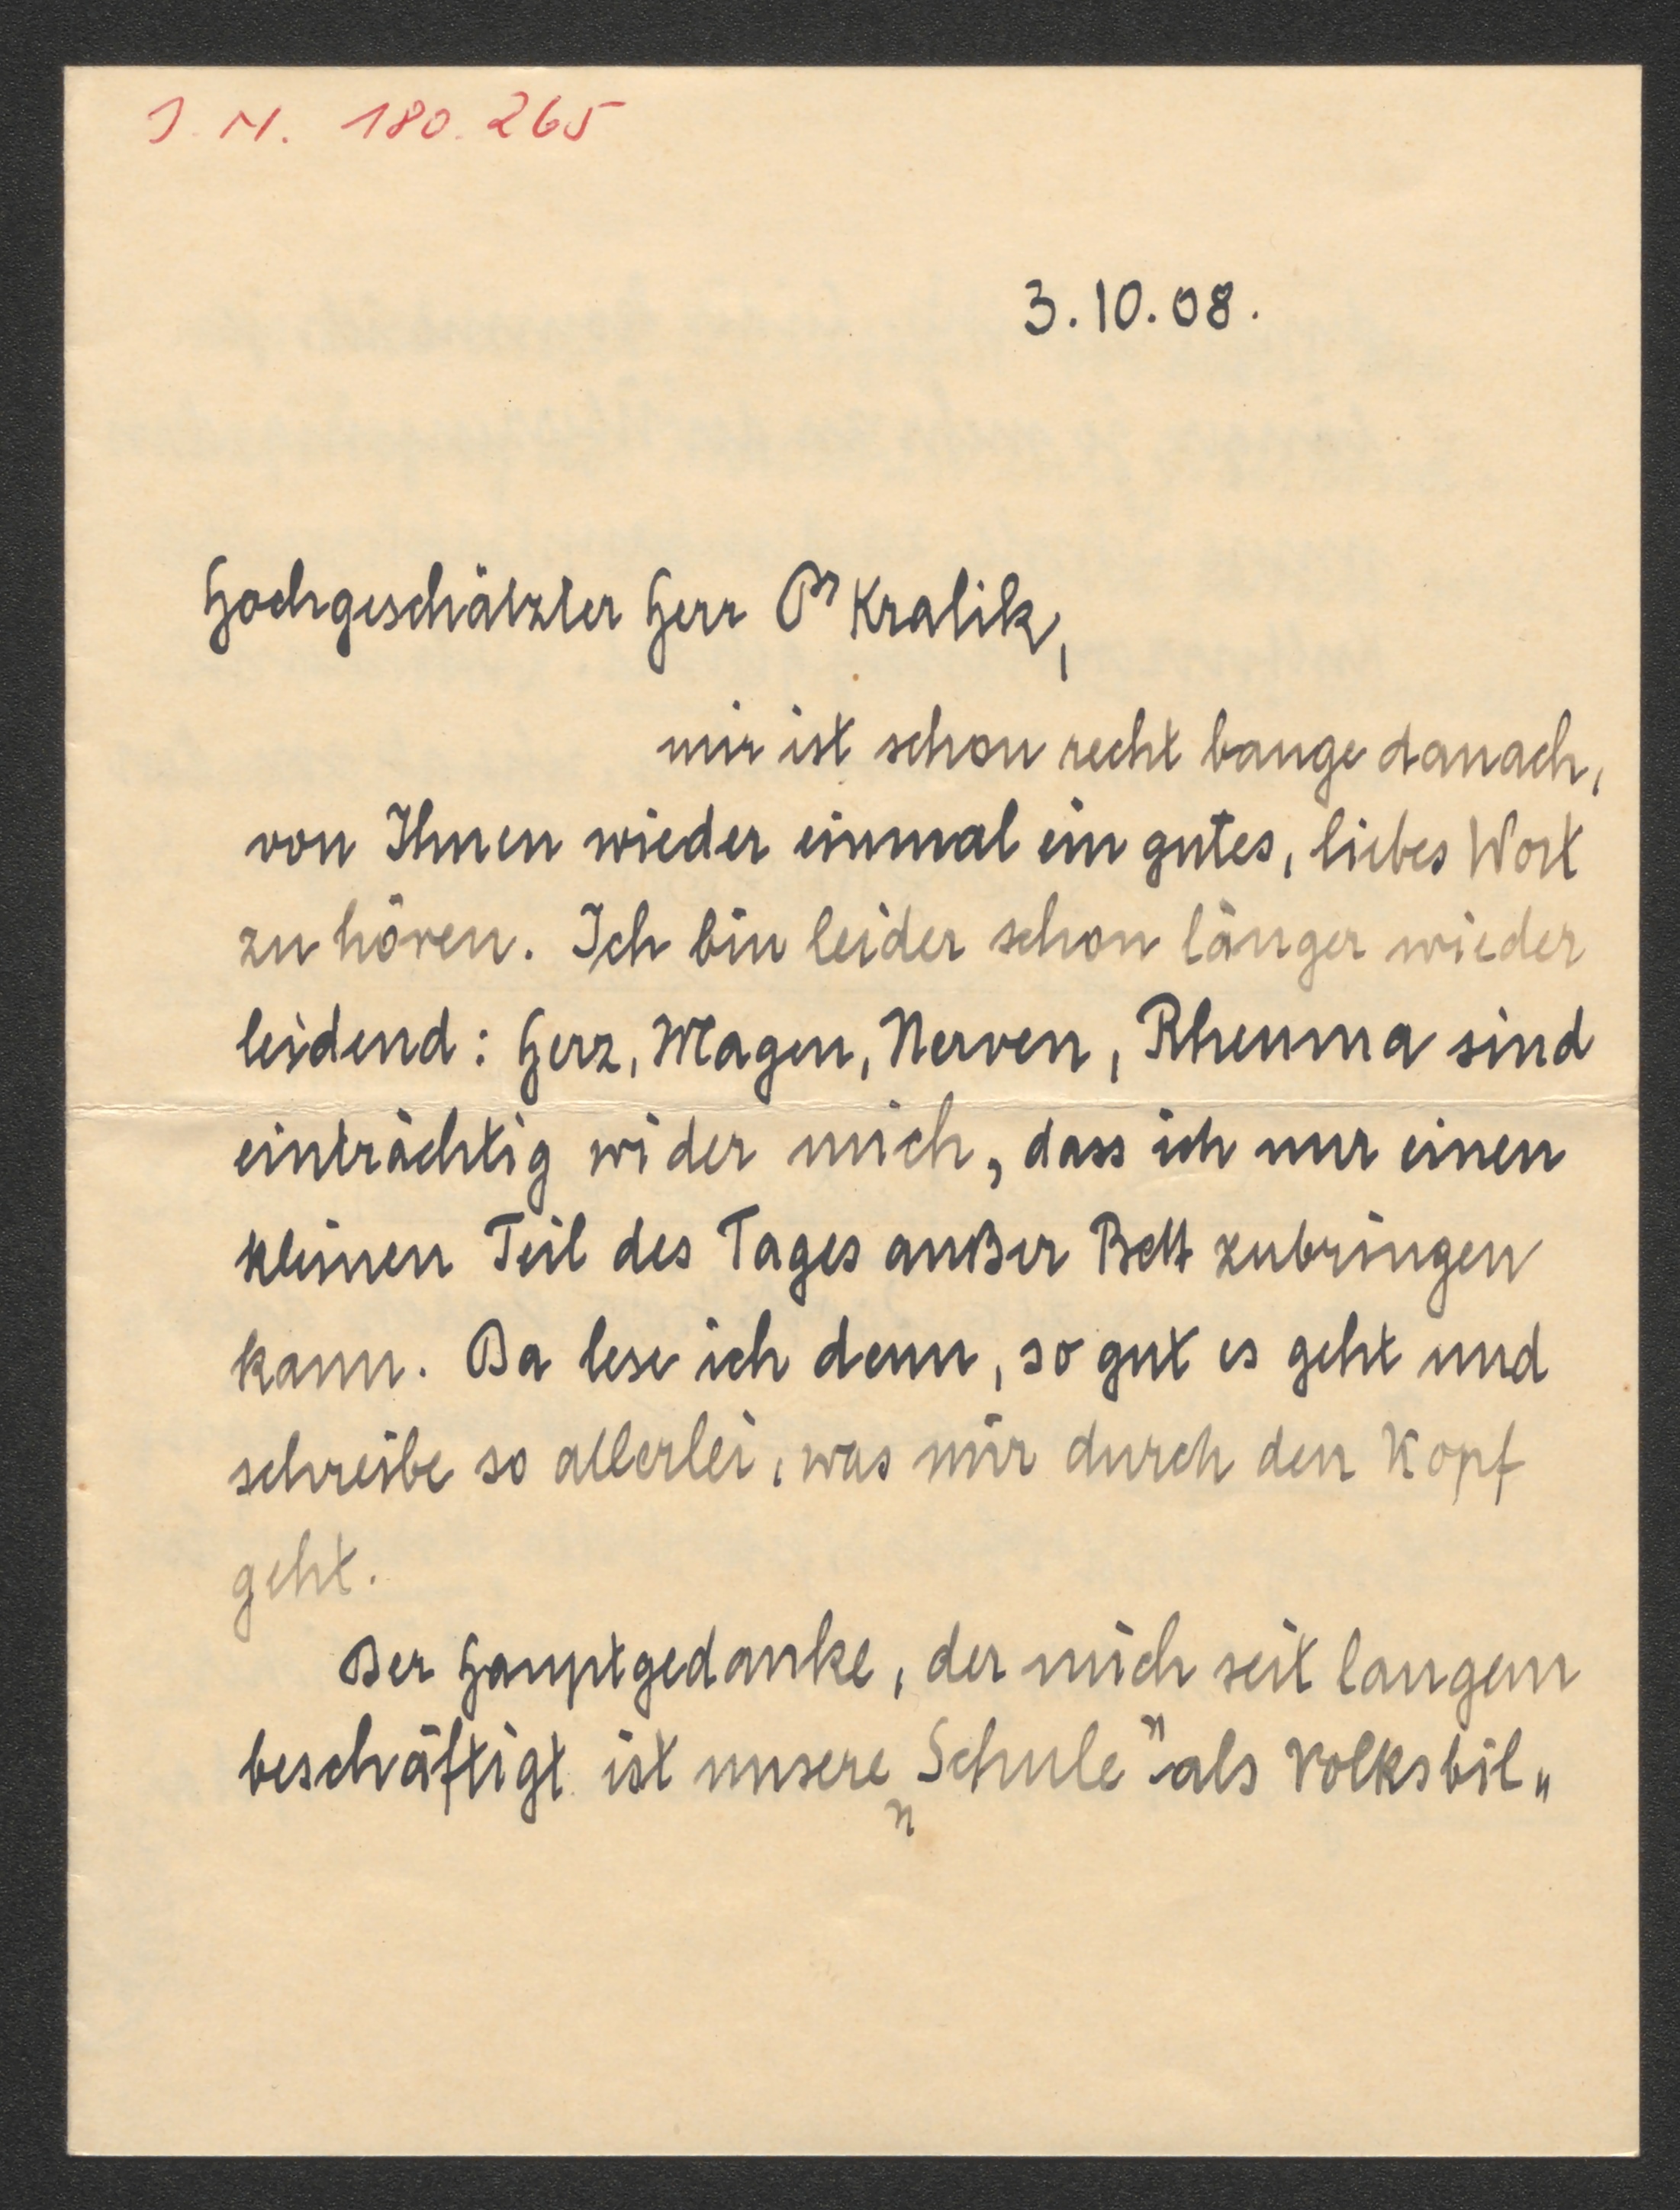 I. N. 180.265
3.10.08.
Hochgeschätzter Herr Dr Kralik,
mir ist schon recht bange danach,
von Ihnen wieder einmal ein gutes, liebes Wort
zu hören. Ich bin leider schon länger wieder
leidend: Herz, Magen, Nerven, Rheuma sind
einträchtig wider mich, dass ich nur einen
kleinen Teil des Tages außer Bett zubringen
kann. Da lese ich denn, so gut es geht und
schreibe so allerlei, was mir durch den Kopf
geht.
Der Hauptgedanke, der mich seit langem
beschäftigt ist unsere „Schule" als Volksbil„